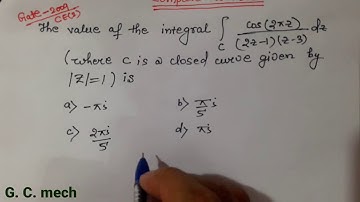 Gate-2009
CE(3)
The value of the integral ∫ cos(2πz) / (2z-1)(z-3) dz
C
(where C is a closed curve given by
|Z|=1) is
a) -πi
b) πi/5
c) 2πi/5
d) πi
G. C. mech